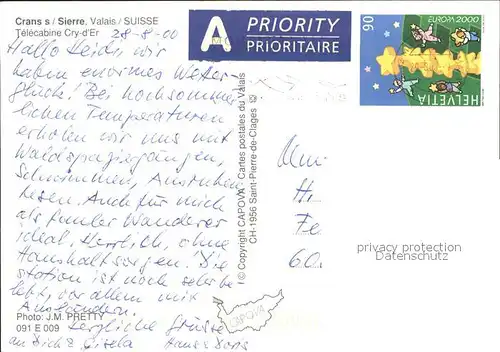 Crans s / Sierre, Valais / SUISSE
Télécabine Cry-d'Er
28-8-00
Hallo Heidi, wir
haben enormes Wetter-
glück! Bei hochsommer-
lichen Temperaturen
erholen wir uns mit
Waldspaziergängen,
Schwimmen, Ausruhen
Lesen. Auch für mich
als fauler Wanderer
ideal. Herrlich, ohne
Haushaltsorgen! Die
station ist noch sehr be
lebt, vor allem mit
Ausländern.
Herzliche Grüsse
an Dich & Gisela Hans & Doris
Photo: J.M. PRETTY
091 E 009
© Copyright CAPOVA: Cartes postales du Valais
CH-1956 Saint-Pierre-de-Clages ©
CAPOVA
A PRIORITY
PRIORITAIRE
90
EUROPA 2000
HELVETIA
Hi
Fe
60
privacy protection
Datenschutz